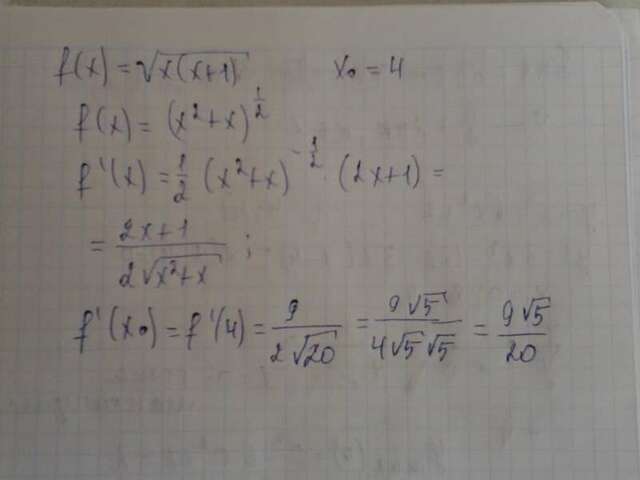 f(x) = √(x(x+1)) x₀ = 4
f(x) = (x²+x)^(1/2)
f'(x) = 1/2 (x²+x)^(-1/2) · (2x+1) =
= (2x+1)/(2√(x²+x)) ;
f'(x₀) = f'(4) = 9/(2√20) = 9√5/(4√5√5) = 9√5/20